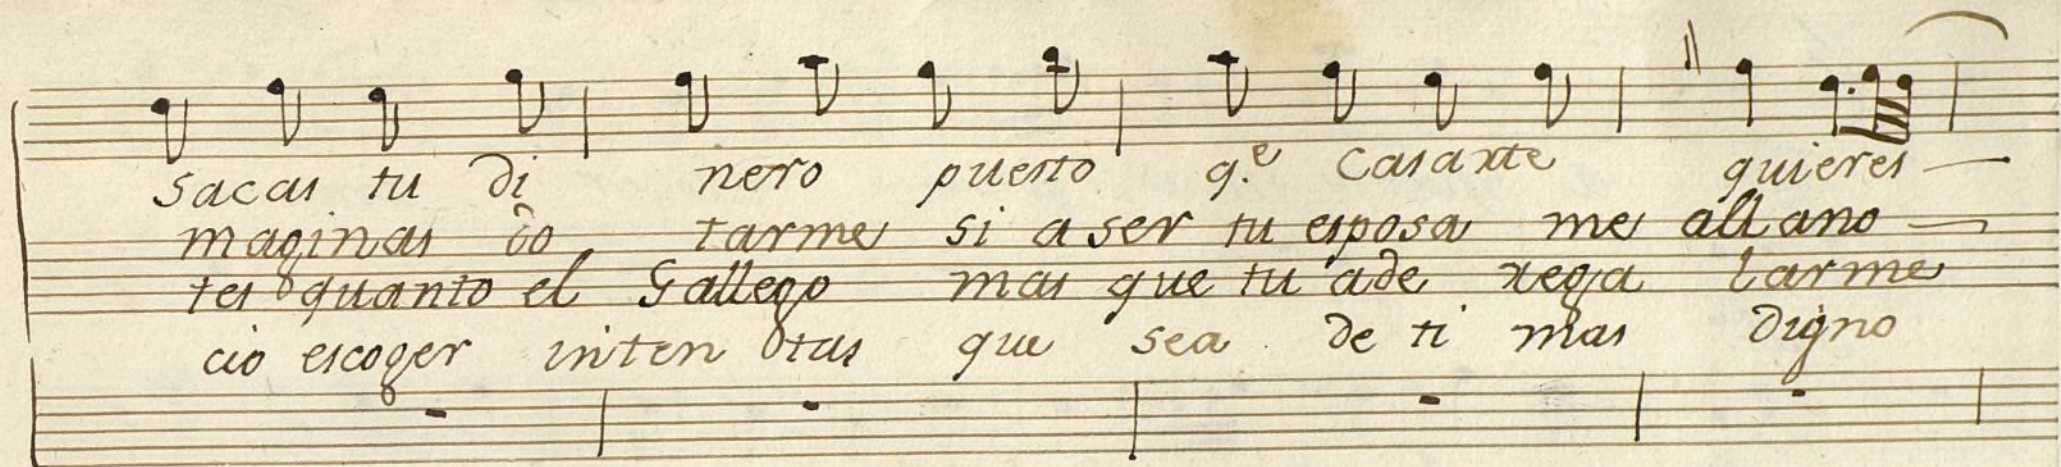 sacas tu di nero puesto q.e Casarte quieres
maginas do tarme si a ser tu esposa me allano
tes quanto el Gallego mas que tu a de rega larme
cio escoger inten tas que sea de ti mas digno